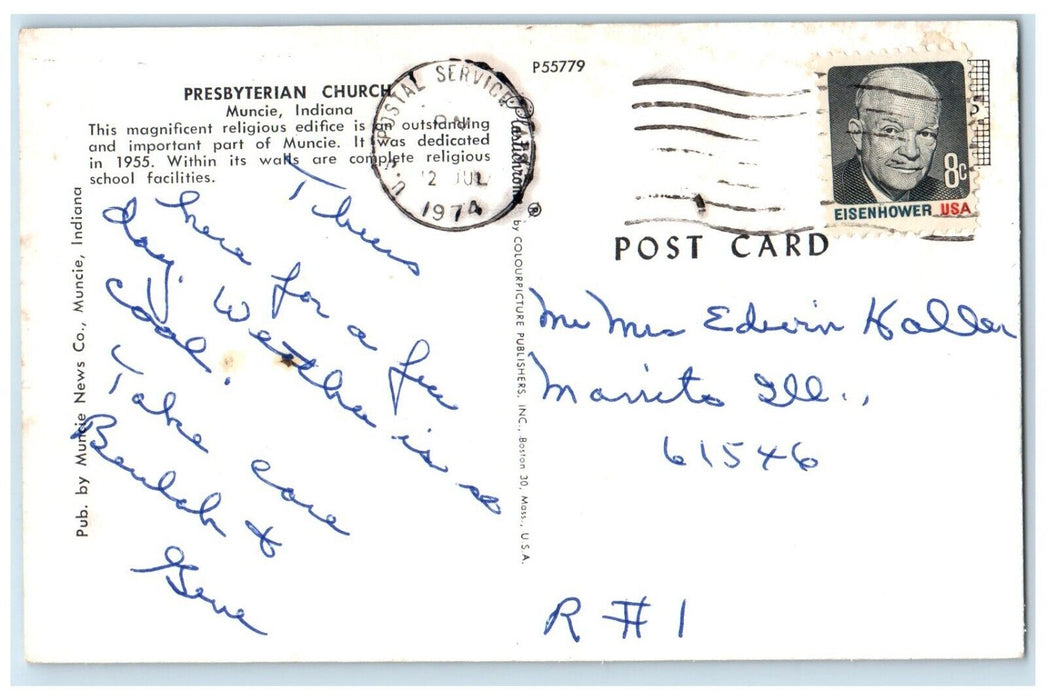 PRESBYTERIAN CHURCH
Muncie, Indiana
This magnificent religious edifice is an outstanding
and important part of Muncie. It was dedicated
in 1955. Within its walls are complete religious
school facilities.
Pub. by Muncie News Co., Muncie, Indiana
here for a few
day. Weather is so
cool.
Take care
Beulah &
Gene
P55779
U.S. POSTAL SERVICE
PM
2 JUL
1974
Plastichrome®
by COLOURPICTURE PUBLISHERS, INC., Boston 30, Mass., U.S.A.
8c
EISENHOWER USA
POST CARD
Mr Mrs Edwin Kaller
Manito Ill.,
61546
R #1